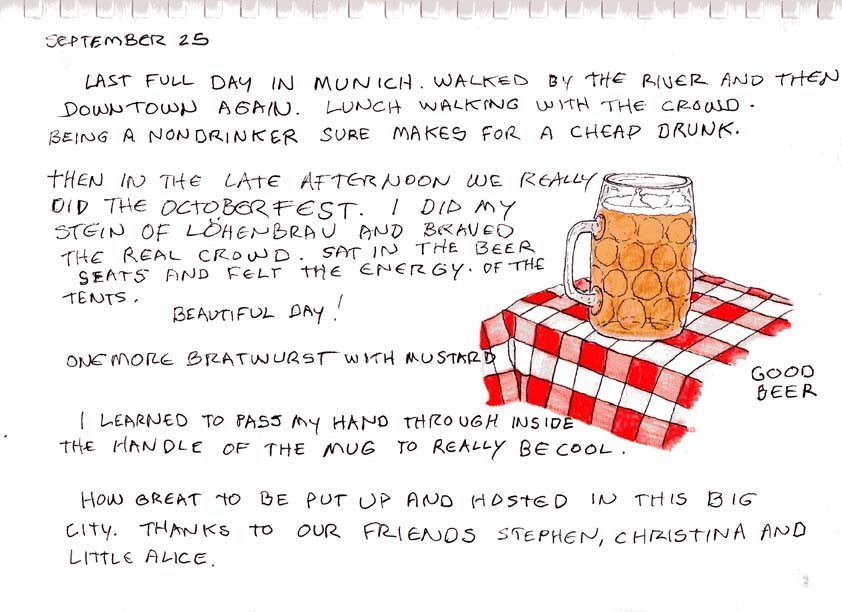 SEPTEMBER 25
LAST FULL DAY IN MUNICH. WALKED BY THE RIVER AND THEN
DOWNTOWN AGAIN. LUNCH WALKING WITH THE CROWD.
BEING A NONDRINKER SURE MAKES FOR A CHEAP DRUNK.
THEN IN THE LATE AFTERNOON WE REALLY
DID THE OCTOBERFEST. I DID MY
STEIN OF LÖHENBRAU AND BRAVED
THE REAL CROWD. SAT IN THE BEER
SEATS AND FELT THE ENERGY. OF THE
TENTS.
BEAUTIFUL DAY!
ONE MORE BRATWURST WITH MUSTARD
GOOD
BEER
I LEARNED TO PASS MY HAND THROUGH INSIDE
THE HANDLE OF THE MUG TO REALLY BE COOL.
HOW GREAT TO BE PUT UP AND HOSTED IN THIS BIG
CITY. THANKS TO OUR FRIENDS STEPHEN, CHRISTINA AND
LITTLE ALICE.